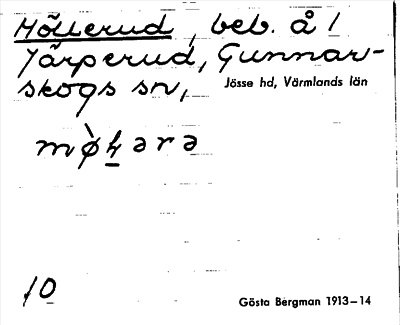 Höllerud, beb. å 1
Järperud, Gunnar-
skogs sn,
Jösse hd, Värmlands län
10
Gösta Bergman 1913–14